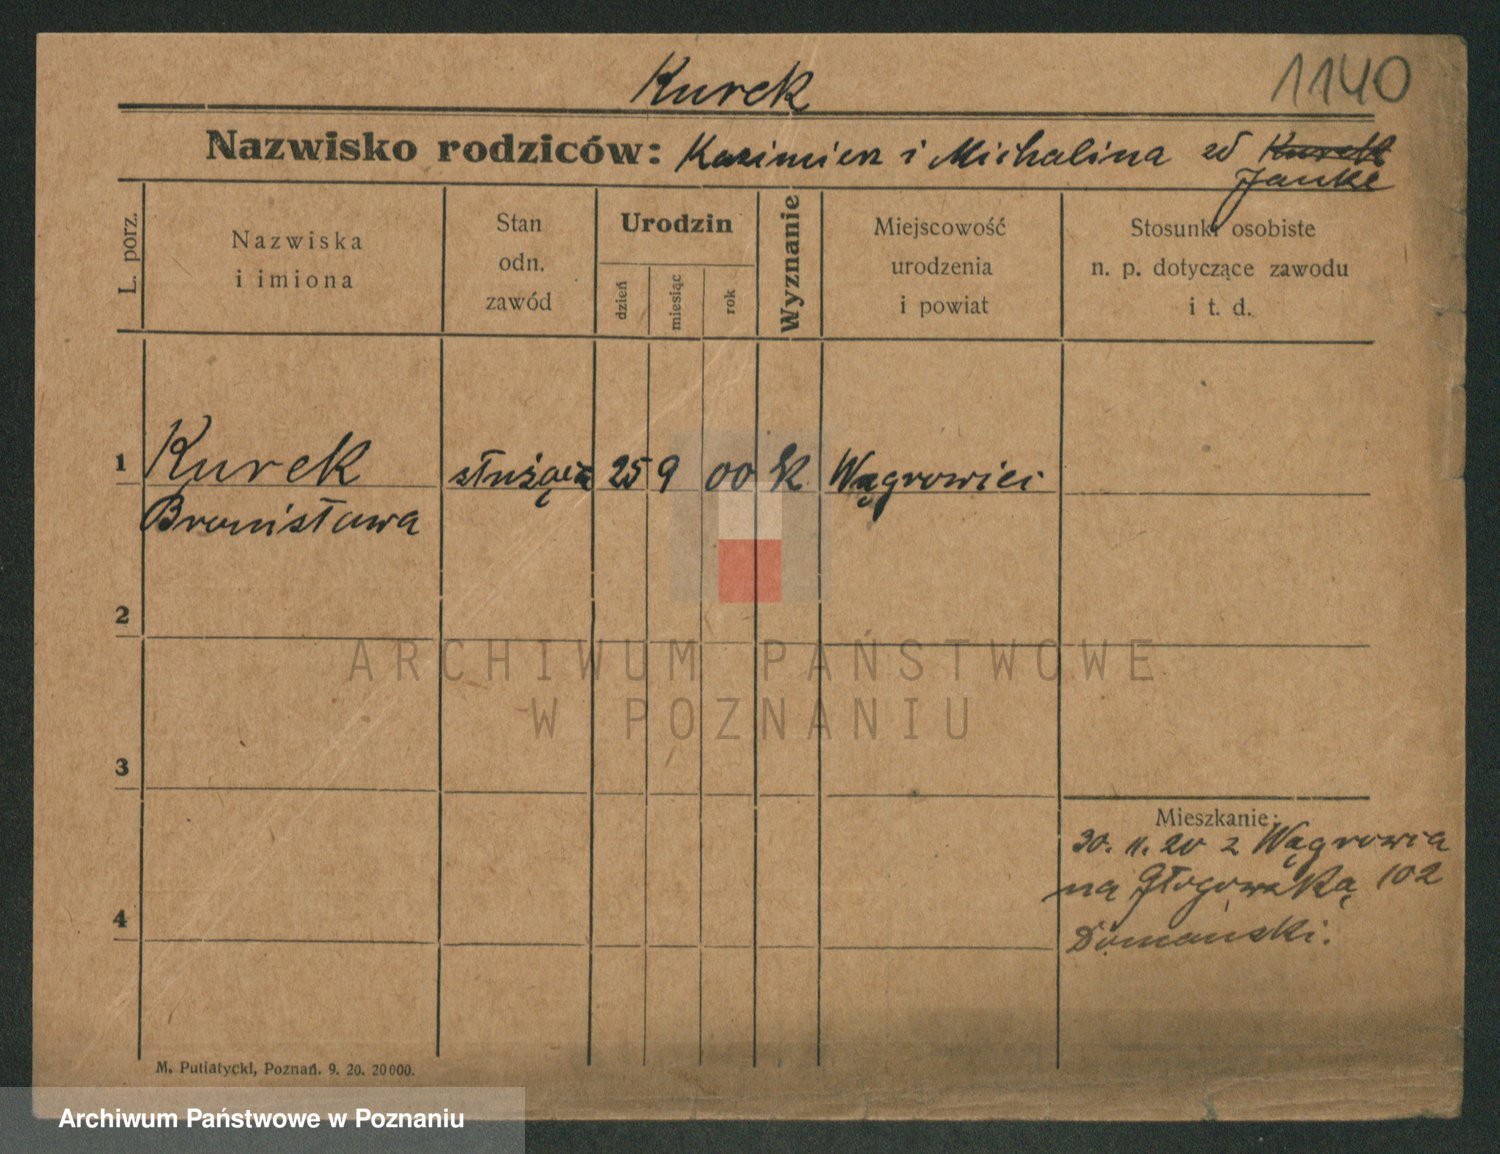 Kurek
1140
Nazwisko rodziców: Kazimierz i Michalina zd Kurek
Janke
L. porz.
Nazwiska
i imiona
Stan
odn.
zawód
Urodzin
dzień
miesiąc
rok
Wyznanie
Miejscowość
urodzenia
i powiat
Stosunki osobiste
n. p. dotyczące zawodu
i t. d.
1 Kurek służąca 25 9 00 k Wągrowiec
Bronisława
2
3
Mieszkanie:
30. 11. 20 z Wągrowca
na Głogowską 102
4
Domański.
M. Putiatycki, Poznań. 9. 20. 20000.
ARCHIWUM PAŃSTWOWE
W POZNANIU
Archiwum Państwowe w Poznaniu